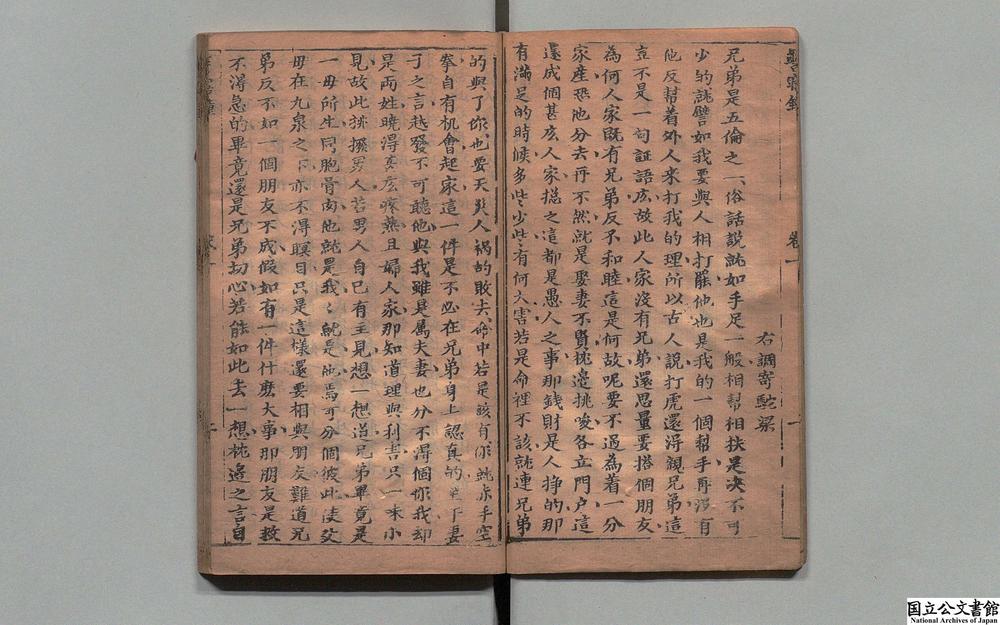 右調寄駝梁
兄弟是五倫之一俗話説就如手足一般相幫相扶是决不可
少的就譬如我要與人相打罷他也是我的一個幫手再沒有
他反幫着外人来打我的理所以古人説打虎還得親兄弟這
豈不是一句証語庅故此人家沒有兄弟還思量要搭個朋友
為何人家既有兄弟反不和睦這是何故呢要不過為着一分
家産恐他分去再不然就是娶妻不賢枕邊挑唆各立門户這
還成個甚庅人家捴之這都是愚人之事那錢財是人挣的那
有滿足的時候多些少些有何大害若是命裡不該就連兄弟
的與了你也要天災人禍的敗去命中若是該有你就赤手空
拳自有机會起家這一件是不必在兄弟身上認真的至于妻
子之言越發不可聽他與我雖是屬夫妻也分不得個你我却
是両姓曉得甚庅疼熱且婦人家那知道理與利害只一味小
見故此挑撥男人若男人自己有主見想一想道兄弟畢竟是
一母所生同胞骨肉他就是我我就是他焉可分個彼此使父
母在九泉之下亦不得瞑目只是這様還要相與朋友難道兄
弟反不如一個朋友不成假如有一件什麽大事那朋友是救
不得急的畢竟還是兄弟切心若能如此去一想枕邊之言自
卷一
一
国立公文書館
National Archives of Japan